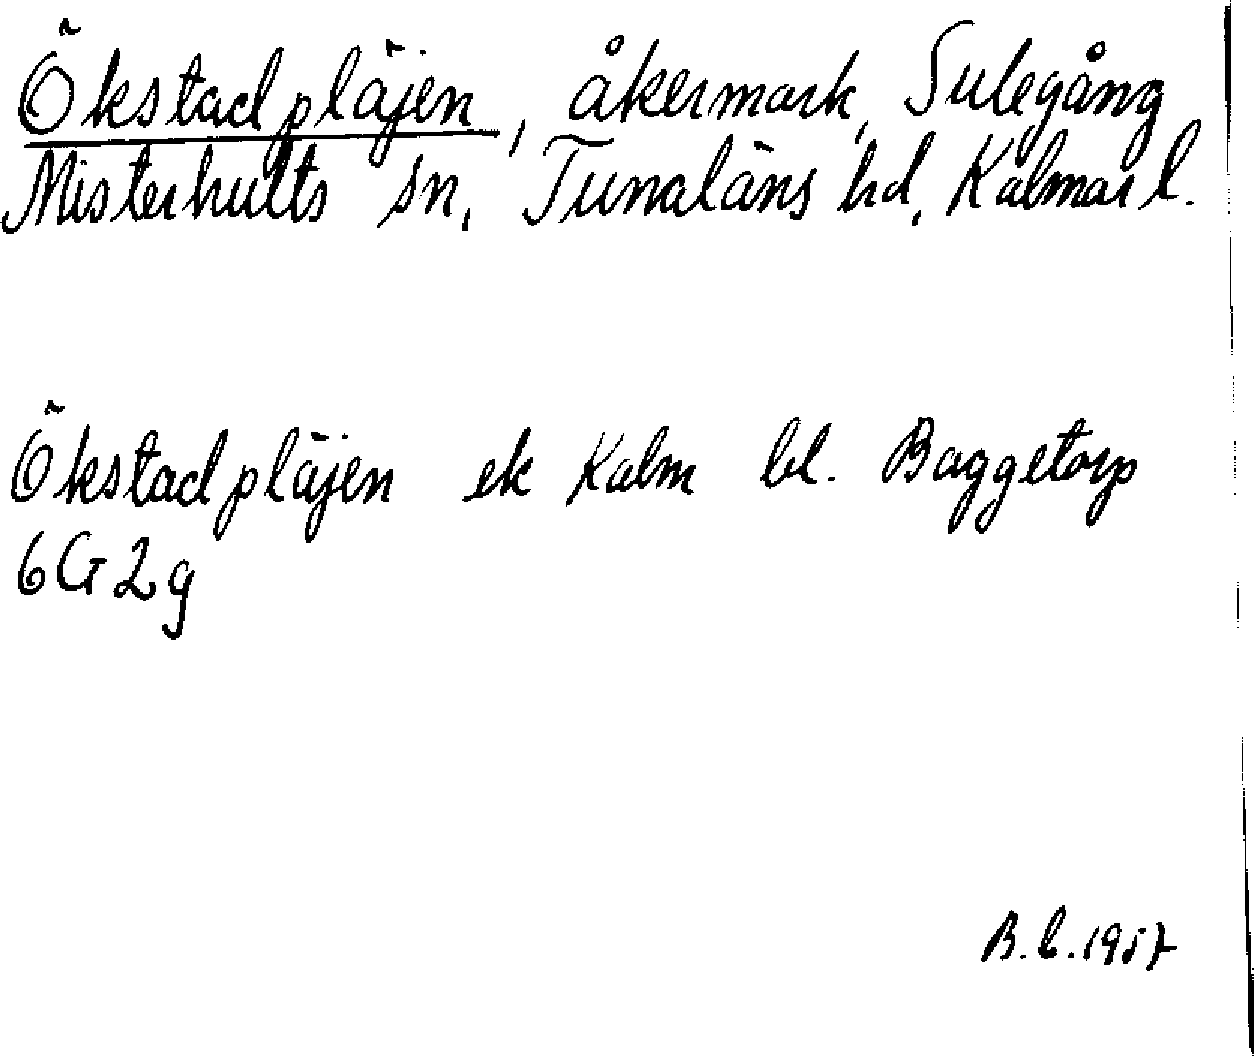 Ökstadpläjen, åkermark, Sulegång
Misterhults sn, Tunaläns hd, Kalmar l.
Ökstadpläjen ek Kalm bl. Baggetorp
6G2g